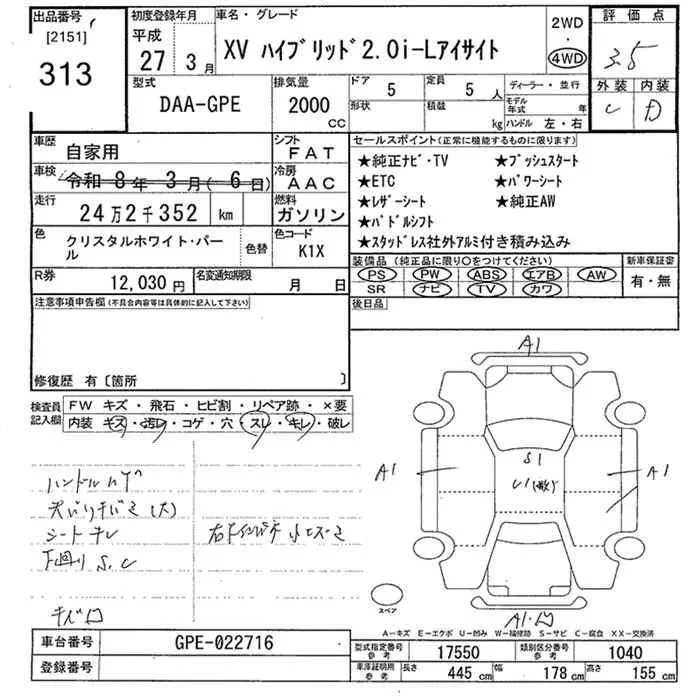 出品番号
[2151]
313
初度登録年月
平成
27 3月
車名・グレード
XV ハイブリッド2.0i-Lアイサイト
2WD
・
4WD
評価点
3.5
外装 内装
C D
型式
DAA-GPE
排気量
2000
CC
ドア
5
定員
5 人
形状
積載
kg
ディーラー・並行
モデル年式 年
ハンドル 左・右
車歴
自家用
シフト
FAT
車検
令和 8年 3月( 6日)
冷房
AAC
走行
24万2千352 km
燃料
ガソリン
色
クリスタルホワイト・パール
色替
色コード
K1X
R券
12,030 円
名変通知期限
月 日
セールスポイント(正常に機能するものに限ります)
★純正ナビ・TV ★プッシュスタート
★ETC ★パワーシート
★レザーシート ★純正AW
★パドルシフト
★スタッドレス社外アルミ付き積み込み
装備品(純正品に限り○をつけてください)
PS PW ABS エアB AW
SR ナビ TV カワ
新車保証書
有・無
後日品
注意事項申告欄(不具合内容等は具体的に記入して下さい)
修復歴 有〔箇所 〕
検査員記入欄
FW キズ・飛石・ヒビ割・リペア跡・×要
内装 キズ・汚レ・コゲ・穴・スレ・キレ・破レ
ハンドルハゲ
シートキレ
下回り S.C
A1
A1
A1
S1
スペア
A-キズ E-エクボ U-凹み W-補修跡 S-サビ C-腐食 XX-交換済
車台番号
GPE-022716
登録番号
型式指定番号
参考
17550
類別区分番号
参考
1040
車庫証明用
参考
長さ
445 cm
幅
178 cm
高さ
155 cm